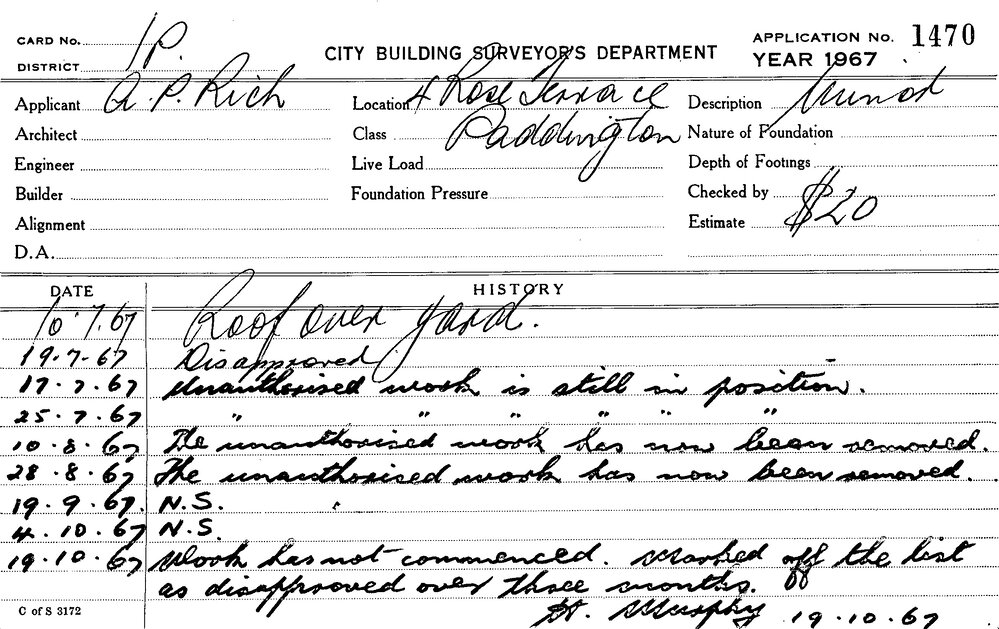 CARD No. 1P.
DISTRICT
CITY BUILDING SURVEYOR'S DEPARTMENT
APPLICATION No. 1470
YEAR 1967
Applicant A. P. Rich
Location 4 Rose Terrace
Description Minor
Architect
Class Paddington
Nature of Foundation
Engineer
Live Load
Depth of Footings
Builder
Foundation Pressure
Checked by
Alignment
Estimate $20
D.A.
DATE HISTORY
10.7.67 Roof over yard.
19.7.67 Disapproved
17.7.67 Unauthorised work is still in position.
25.7.67 " " " " " "
10.8.67 The unauthorised work has now been removed.
28.8.67 The unauthorised work has now been removed.
19.9.67. N.S.
4.10.67 N.S.
19.10.67 Work has not commenced. Marked off the list
as disapproved over three months.
Murphy 19.10.67
C of S 3172